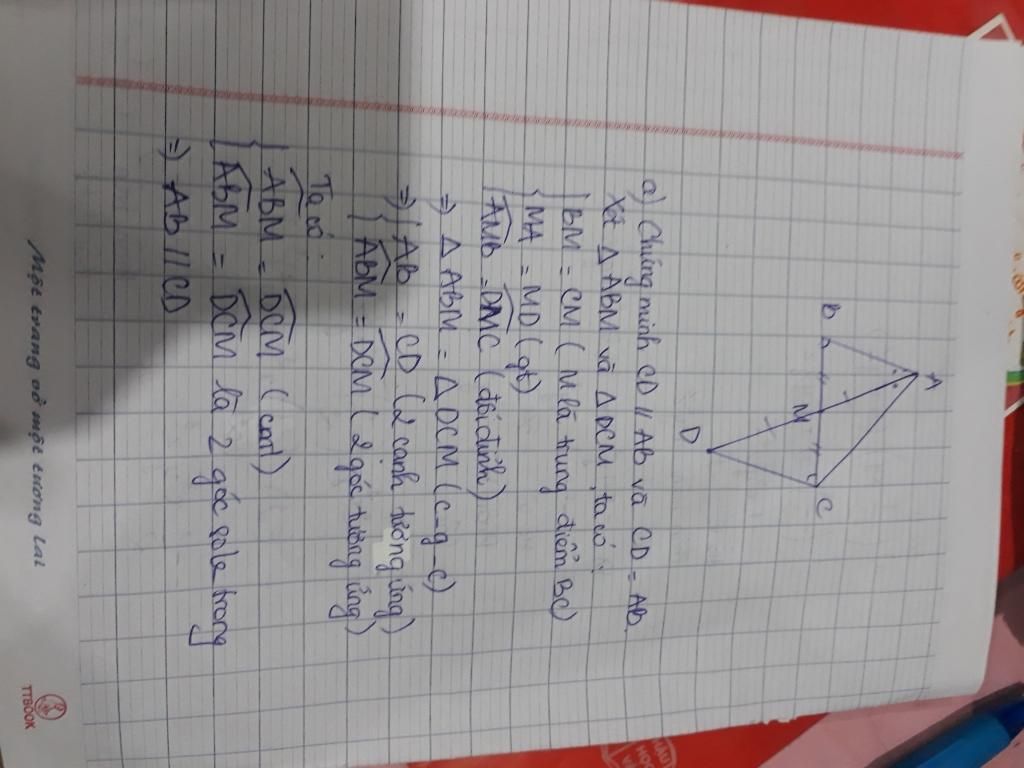 A
B
M
C
D
a) Chứng minh CD // AB và CD = AB.
Xét △ ABM và △ DCM, ta có:
BM = CM ( M là trung điểm BC)
MA = MD ( gt)
AMB = DMC (đối đỉnh)
=) △ ABM = △ DCM ( c-g-c)
=) AB = CD (2 cạnh tương ứng)
ABM = DCM ( 2 góc tương ứng)
Ta có:
ABM = DCM ( cmt)
ABM = DCM là 2 góc sole trong
=) AB // CD
Một trang vở một tương lai
TTBOOK